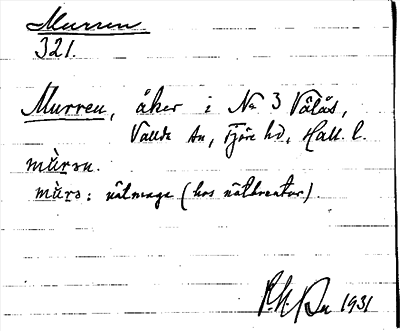 Murren
321.
Murren, åker i No 3 Välås,
Valda sn, Fjäre hd, Hall. l.
mùrən.
mùrə: nötmage (hos nötkreatur).
1931